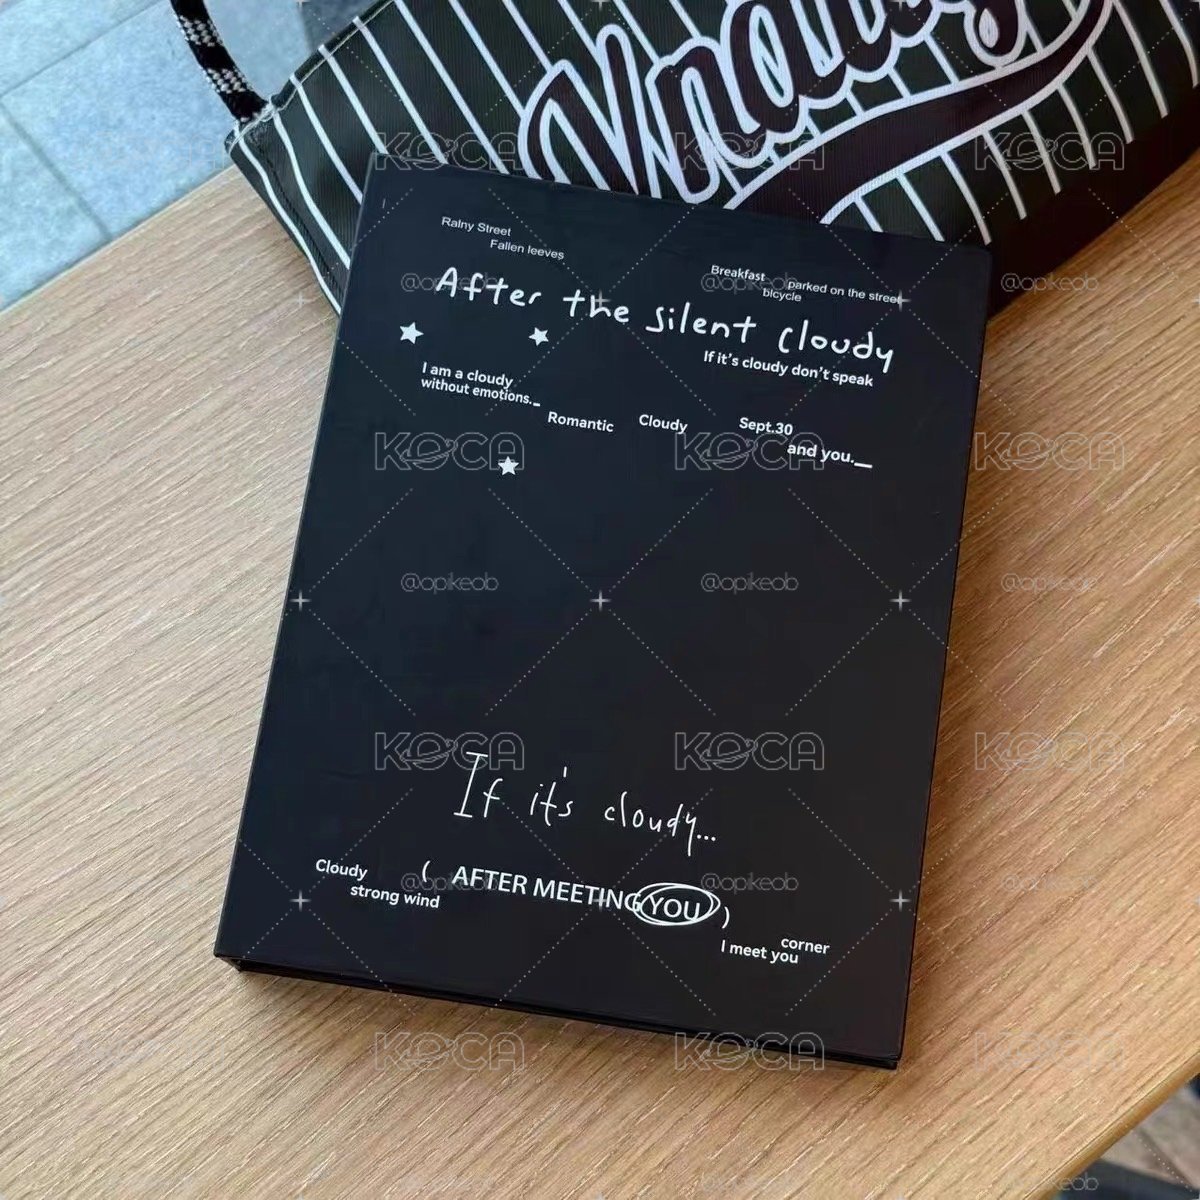 Rainy Street
Fallen leeves
Breakfast
parked on the street
bicycle
After the silent cloudy
If it's cloudy don't speak
I am a cloudy
without emotions._
Romantic
Cloudy
Sept.30
and you._
If it's cloudy...
Cloudy
strong wind
( AFTER MEETING YOU )
corner
I meet you
KOCA
@opikeob